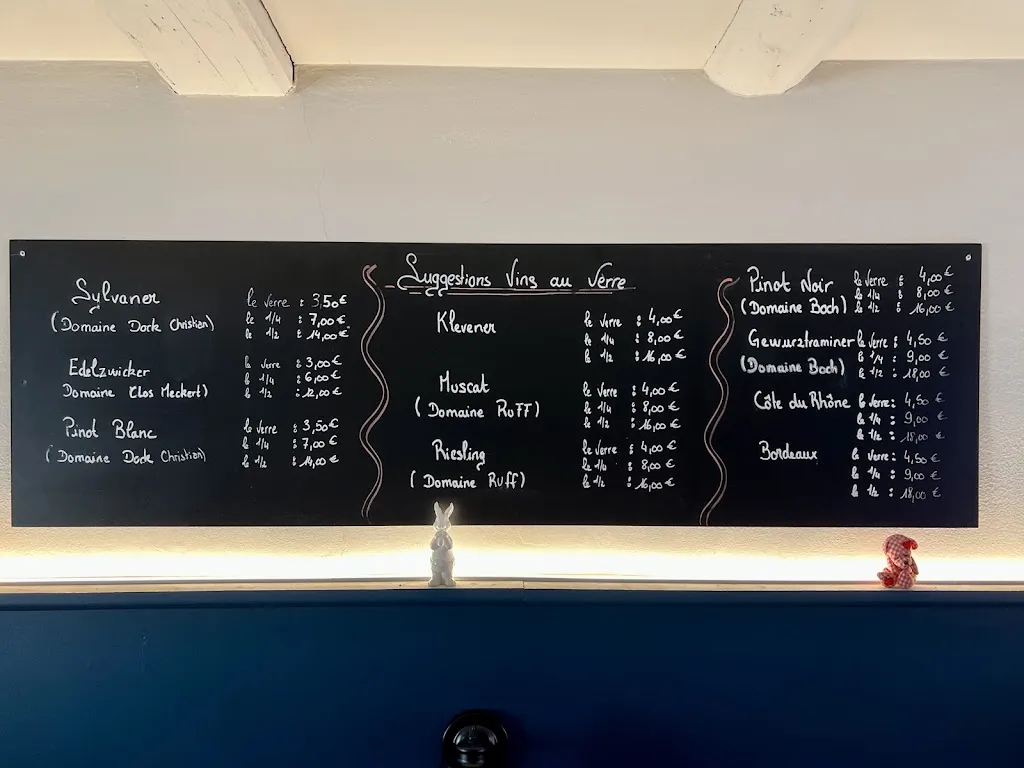 Sylvaner
(Domaine Dock Christian)
le verre : 3,50€
le 1/4 : 7,00€
le 1/2 : 14,00€
Edelzwicker
Domaine Clos Meckert)
le verre : 3,00€
le 1/4 : 6,00€
le 1/2 : 12,00€
Pinot Blanc
(Domaine Dock Christian)
le verre : 3,50€
le 1/4 : 7,00€
le 1/2 : 14,00€
Suggestions Vins au Verre
Klevener
le verre : 4,00€
le 1/4 : 8,00€
le 1/2 : 16,00€
Muscat
(Domaine Ruff)
le verre : 4,00€
le 1/4 : 8,00€
le 1/2 : 16,00€
Riesling
(Domaine Ruff)
le verre : 4,00€
le 1/4 : 8,00€
le 1/2 : 16,00€
Pinot Noir
(Domaine Boch)
le verre : 4,00€
le 1/4 : 8,00€
le 1/2 : 16,00€
Gewurztraminer le verre : 4,50 €
(Domaine Boch)
le 1/4 : 9,00€
le 1/2 : 18,00€
Côte du Rhône le verre : 4,50 €
le 1/4 : 9,00€
le 1/2 : 18,00€
Bordeaux
le verre : 4,50 €
le 1/4 : 9,00 €
le 1/2 : 18,00 €